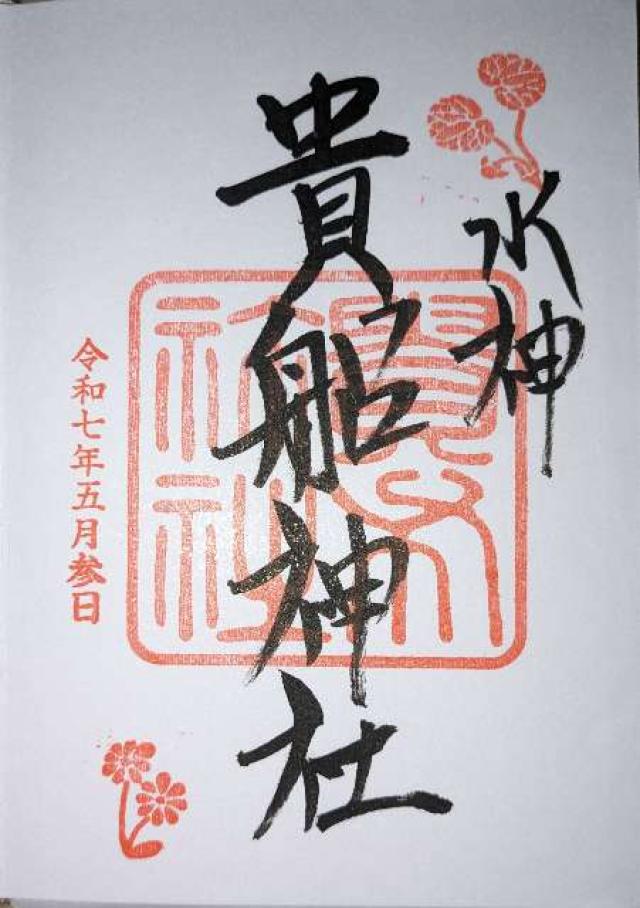 水神
貴船神社
令和七年五月参日